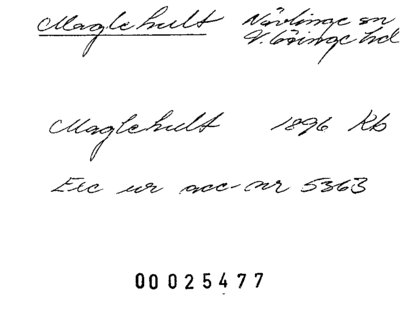 Maglehult Nävlinge sn
V. Göinge hd
Maglehult 1896 Kb
Exc ur acc-nr 5363
00025477